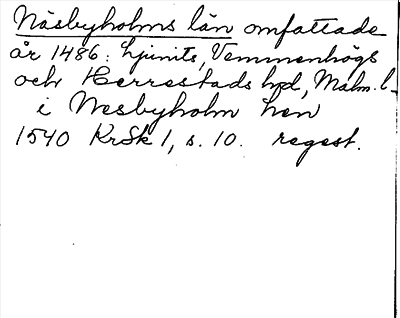 Näsbyholms län omfattade
år 1486: Ljunits, Vemmenhögs
och Herrestads hd, Malm. l.
i Nesbyholm len
1540 KrSk 1, s. 10. regest.